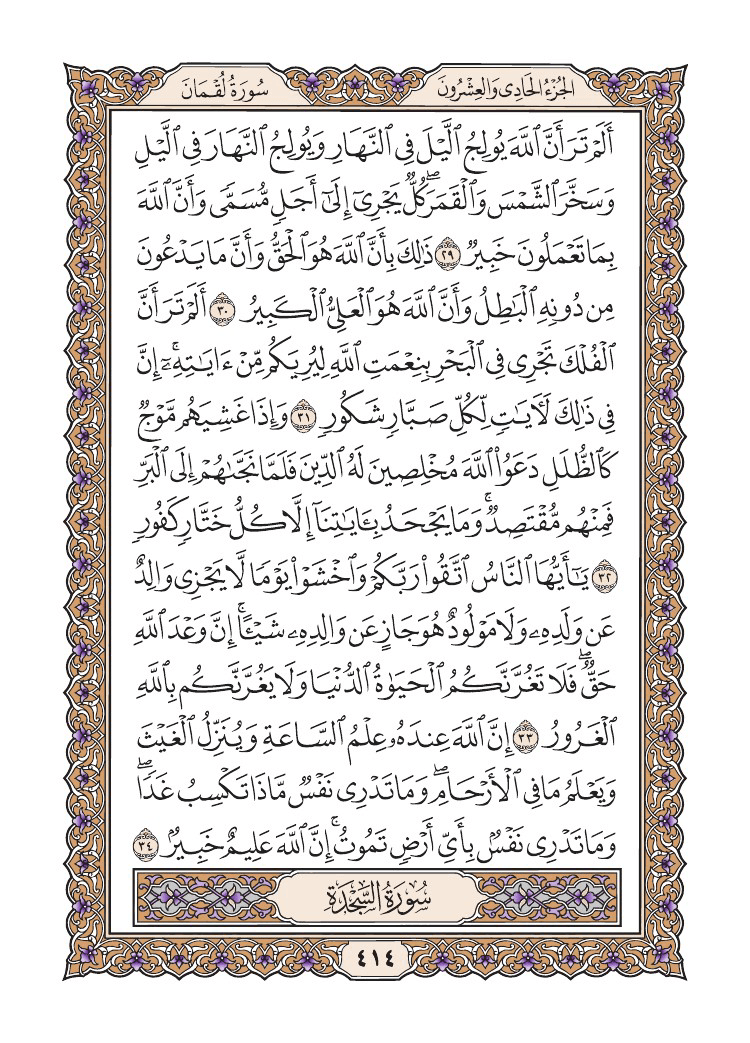 سُورَةُ لُقۡمَانَ
الجُزْءُ الحَادِي وَالعِشْرُونَ
أَلَمۡ تَرَ أَنَّ ٱللَّهَ يُولِجُ ٱلَّيۡلَ فِي ٱلنَّهَارِ وَيُولِجُ ٱلنَّهَارَ فِي ٱلَّيۡلِ
وَسَخَّرَ ٱلشَّمۡسَ وَٱلۡقَمَرَۖ كُلّٞ يَجۡرِيٓ إِلَىٰٓ أَجَلٖ مُّسَمّٗى وَأَنَّ ٱللَّهَ
بِمَا تَعۡمَلُونَ خَبِيرٞ ٢٩ ذَٰلِكَ بِأَنَّ ٱللَّهَ هُوَ ٱلۡحَقُّ وَأَنَّ مَا يَدۡعُونَ
مِن دُونِهِ ٱلۡبَٰطِلُ وَأَنَّ ٱللَّهَ هُوَ ٱلۡعَلِيُّ ٱلۡكَبِيرُ ٣٠ أَلَمۡ تَرَ أَنَّ
ٱلۡفُلۡكَ تَجۡرِي فِي ٱلۡبَحۡرِ بِنِعۡمَتِ ٱللَّهِ لِيُرِيَكُم مِّنۡ ءَايَٰتِهِۦٓۚ إِنَّ
فِي ذَٰلِكَ لَأٓيَٰتٖ لِّكُلِّ صَبَّارٖ شَكُورٖ ٣١ وَإِذَا غَشِيَهُم مَّوۡجٞ
كَٱلظُّلَلِ دَعَوُاْ ٱللَّهَ مُخۡلِصِينَ لَهُ ٱلدِّينَ فَلَمَّا نَجَّىٰهُمۡ إِلَى ٱلۡبَرِّ
فَمِنۡهُم مُّقۡتَصِدٞۚ وَمَا يَجۡحَدُ بِـَٔايَٰتِنَآ إِلَّا كُلُّ خَتَّارٖ كَفُورٖ
٣٢ يَٰٓأَيُّهَا ٱلنَّاسُ ٱتَّقُواْ رَبَّكُمۡ وَٱخۡشَوۡاْ يَوۡمٗا لَّا يَجۡزِي وَالِدٌ
عَن وَلَدِهِۦ وَلَا مَوۡلُودٌ هُوَ جَازٍ عَن وَالِدِهِۦ شَيۡـًٔاۚ إِنَّ وَعۡدَ ٱللَّهِ
حَقّٞۖ فَلَا تَغُرَّنَّكُمُ ٱلۡحَيَوٰةُ ٱلدُّنۡيَا وَلَا يَغُرَّنَّكُم بِٱللَّهِ
ٱلۡغَرُورُ ٣٣ إِنَّ ٱللَّهَ عِندَهُۥ عِلۡمُ ٱلسَّاعَةِ وَيُنَزِّلُ ٱلۡغَيۡثَ
وَيَعۡلَمُ مَا فِي ٱلۡأَرۡحَامِۖ وَمَا تَدۡرِي نَفۡسٞ مَّاذَا تَكۡسِبُ غَدٗاۖ
وَمَا تَدۡرِي نَفۡسُۢ بِأَيِّ أَرۡضٖ تَمُوتُۚ إِنَّ ٱللَّهَ عَلِيمٌ خَبِيرُۢ ٣٤
سُورَةُ السَّجۡدَةِ
٤١٤